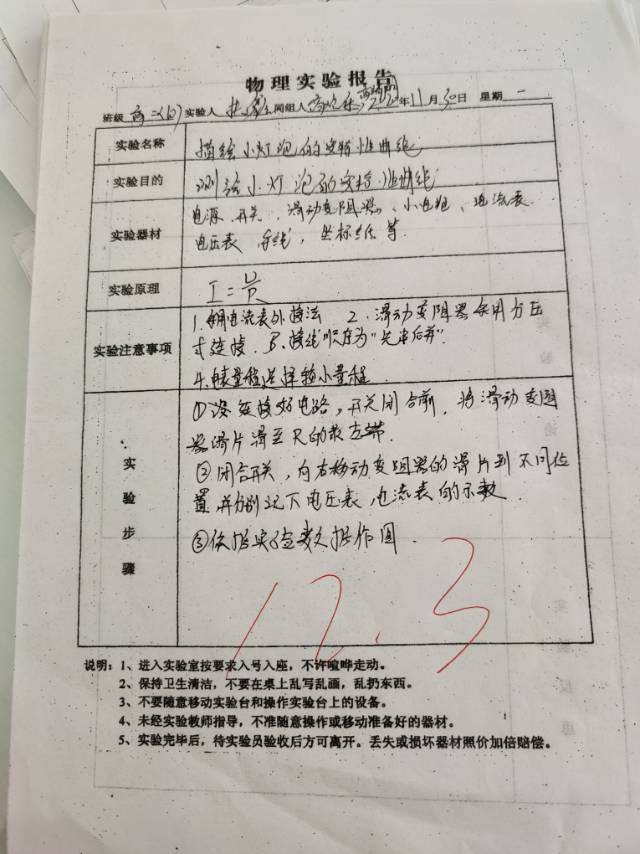 物理实验报告
班级 高二(6) 实验人 同组人 年11月30日 星期 一
实验名称 描绘小灯泡的安特性曲线
实验目的 测绘小灯泡的安特性曲线
实验器材 电源、开关、滑动变阻器、小电炮、电流表
电压表 导线, 坐标纸 等.
实验原理 I=U/R
实验注意事项 1.用电流表外接法 2.滑动变阻器采用分压
式连接. 3.接线顺序为"先串后并".
4.量程选择较小量程.
实验步骤
①连接好电路,开关闭合前,将滑动变阻
器滑片滑至R的最左端.
②闭合开关,向右移动变阻器的滑片到不同位
置,并分别记下电压表,电流表的示数.
③依据实验数据作图.
12.3
说明:1、进入实验室按要求入号入座,不许喧哗走动。
2、保持卫生清洁,不要在桌上乱写乱画,乱扔东西。
3、不要随意移动实验台和操作实验台上的设备。
4、未经实验教师指导,不准随意操作或移动准备好的器材。
5、实验完毕后,待实验员验收后方可离开。丢失或损坏器材照价加倍赔偿。